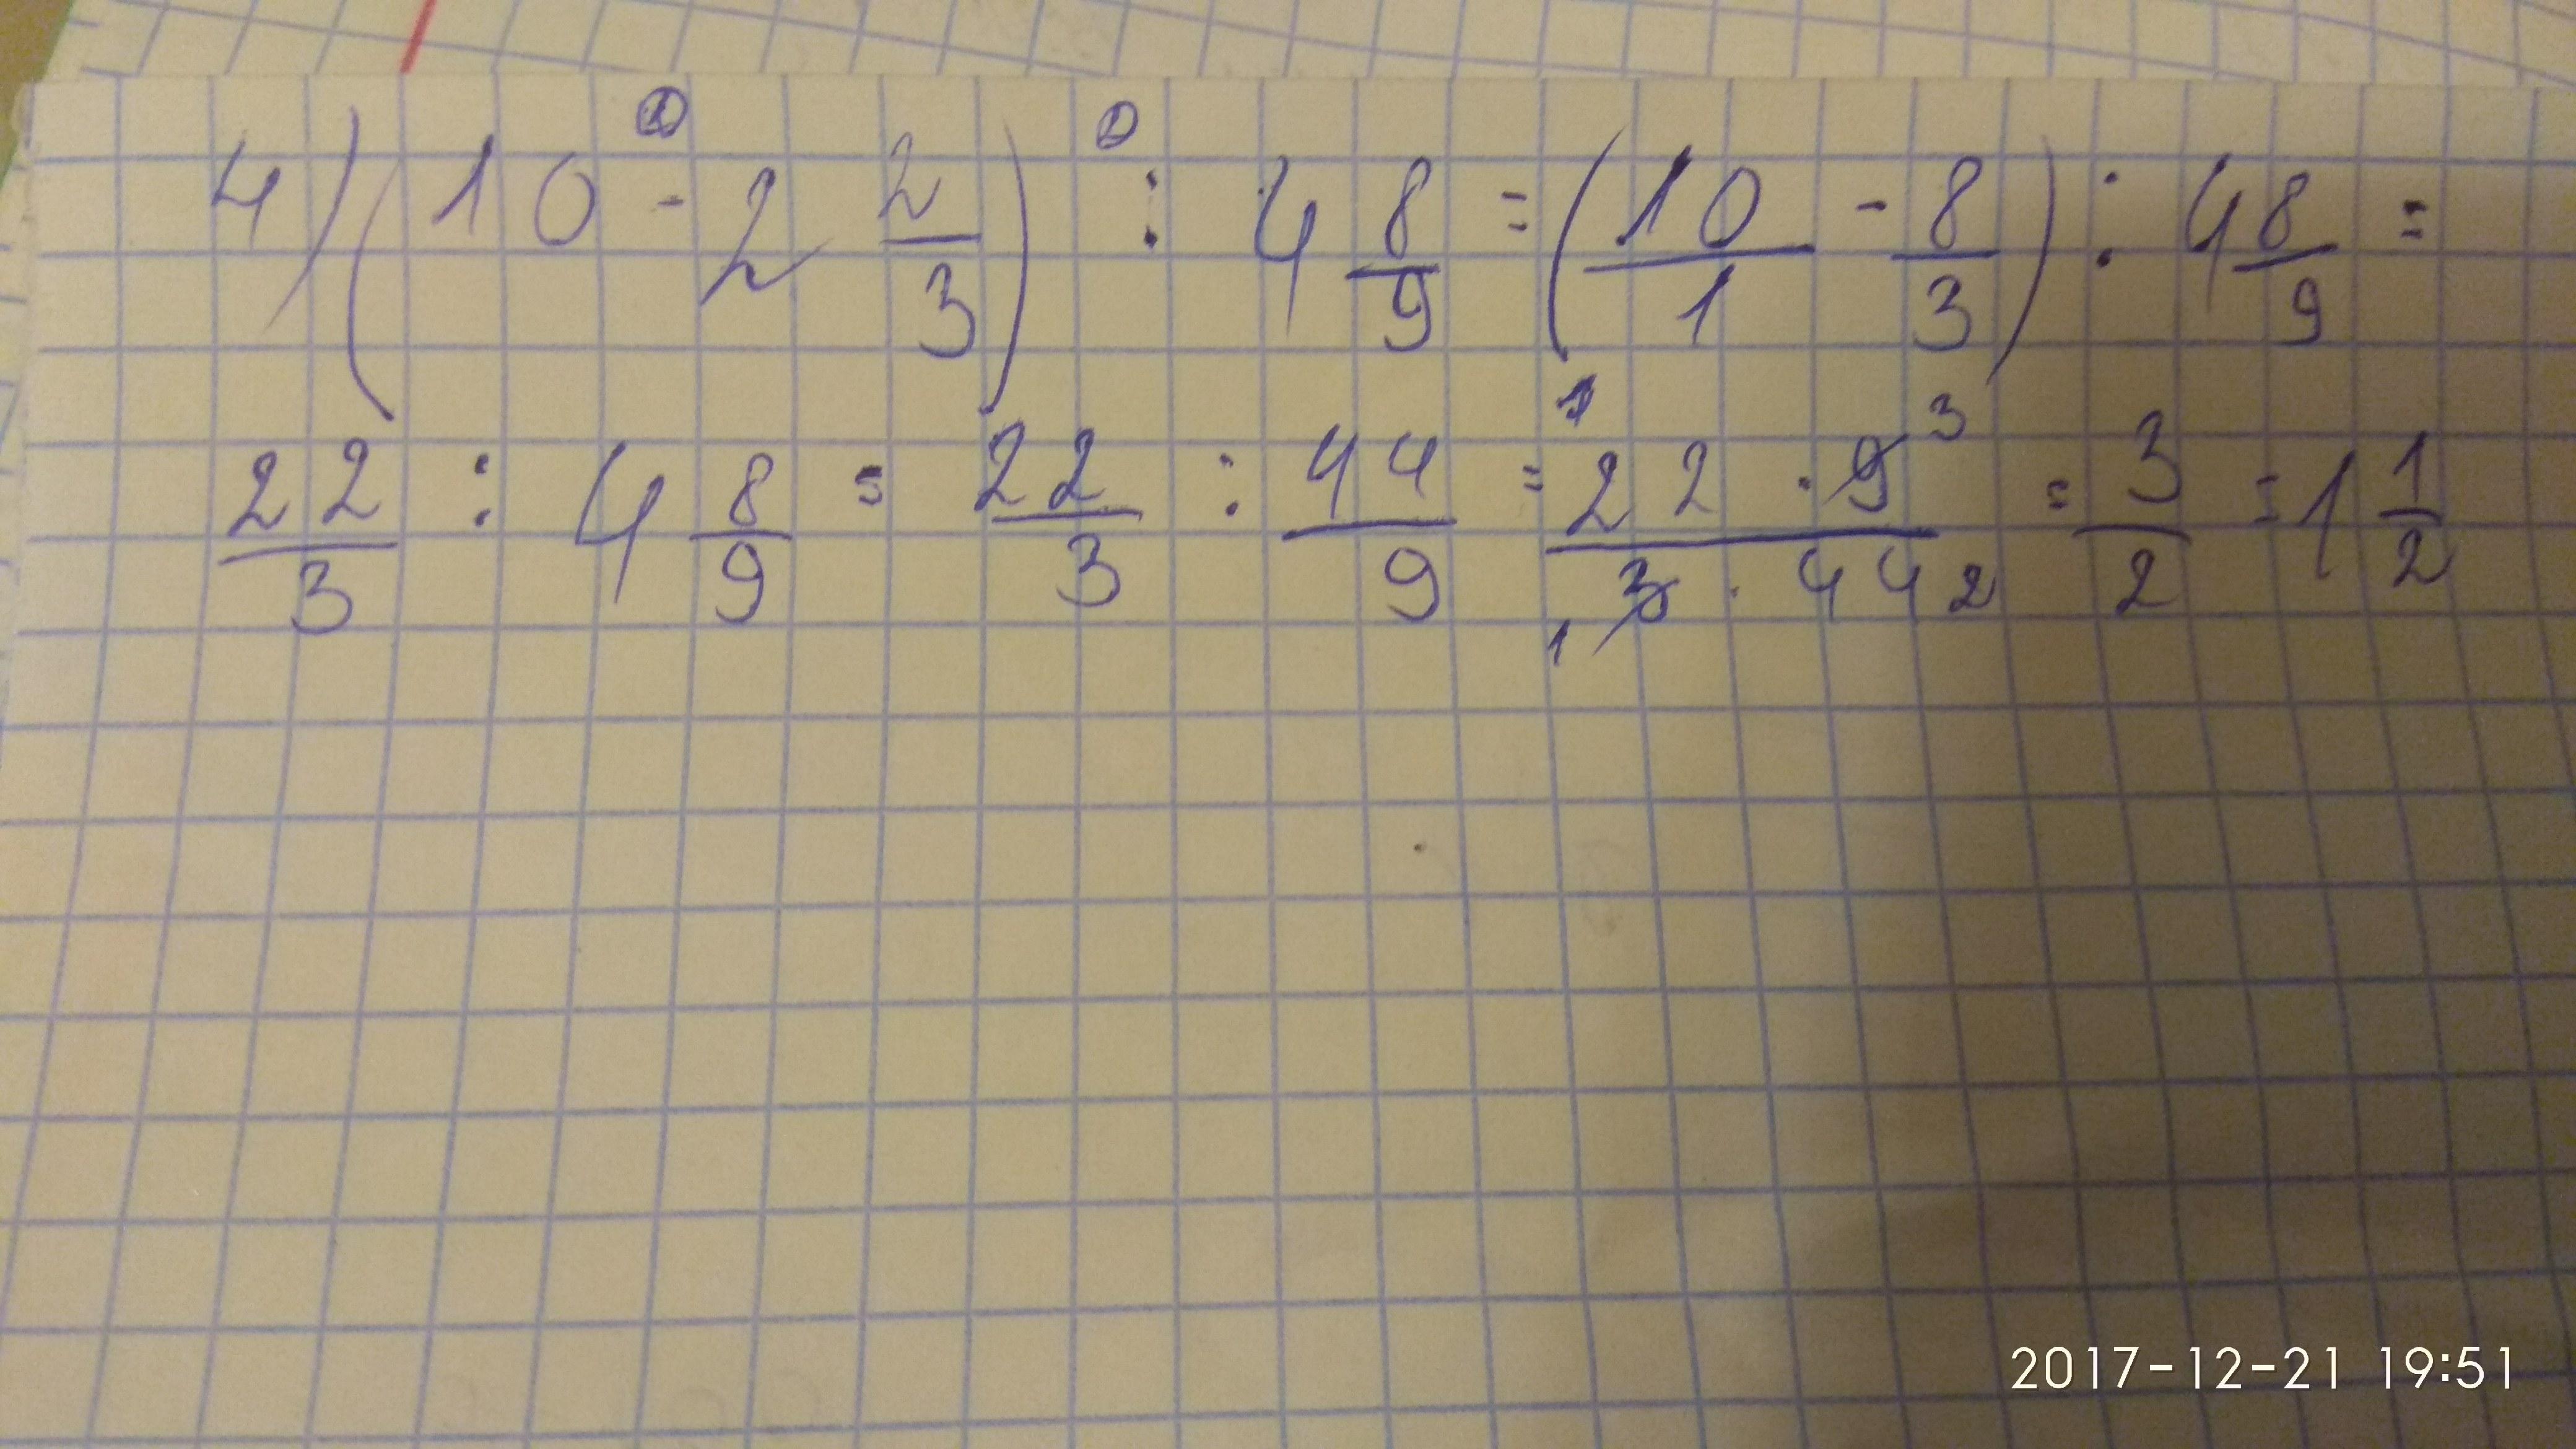 4) (10 - 2 2/3) : 4 8/9 = (10/1 - 8/3) : 4 8/9 =
22/3 : 4 8/9 = 22/3 : 44/9 = 22 · 9 / 3 · 44 = 3/2 = 1 1/2
2017-12-21 19:51